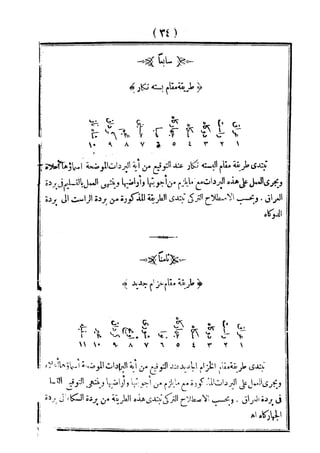 ( ٣٤ )
سابعاً
طريقة مقام بسته نكار
عراق راست دوكاه سيكاه جهاركاه صبا عجم كردان
١ ٢ ٣ ٤ ٥ ٦ ٧ ٨ ٩ ١٠
تبتدى طريقة مقام البسته نكار عند التوقيع من أية البردات الموضحة اسماؤها أعلاه
ويجرى العمل على هذه البردات مع مايلزم من أجوبتها وأراضيها وينتهى العمل بالتسليم فى بردة
العراق . وبحسب الاصطلاح التركى تبتدى الطريقة المذكورة من بردة الراست الى بردة
الدوكاه
ثامناً
طريقة مقام خزام جديد
عراق راست دوكاه سيكاه جهاركاه نوا شورى كردان
١ ٢ ٣ ٤ ٥ ٦ ٧ ٨ ٩ ١٠ ١١
تبتدى طريقة مقام الخزام الجديد عند التوقيع من أية البردات الموضحة أسماؤها أعلاه
ويجرى العمل على البردات المذكورة مع مايلزم من أجوبتها وأراضيها وينتهى التوقيع
فى بردة العراق . وبحسب الاصطلاح التركى تبتدى هذه الطريقة من بردة السيكاه الى بردة
الجهاركاه اه